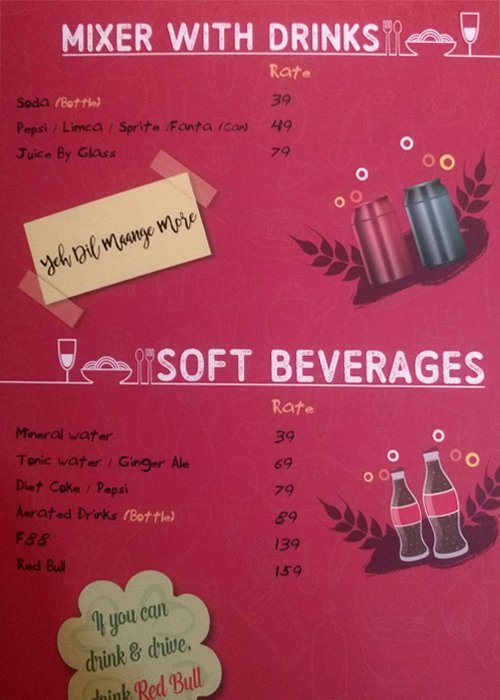 MIXER WITH DRINKS
Rate
Soda (Bottle) 39
Pepsi / Limca / Sprite /Fanta /(Can) 49
Juice By Glass 79
Yeh Dil Maange More
SOFT BEVERAGES
Rate
Mineral water 39
Tonic water / Ginger Ale 69
Diet Coke / Pepsi 79
Aerated Drinks (Bottle) 89
F88 139
Red Bull 159
If you can
drink & drive,
drink Red Bull